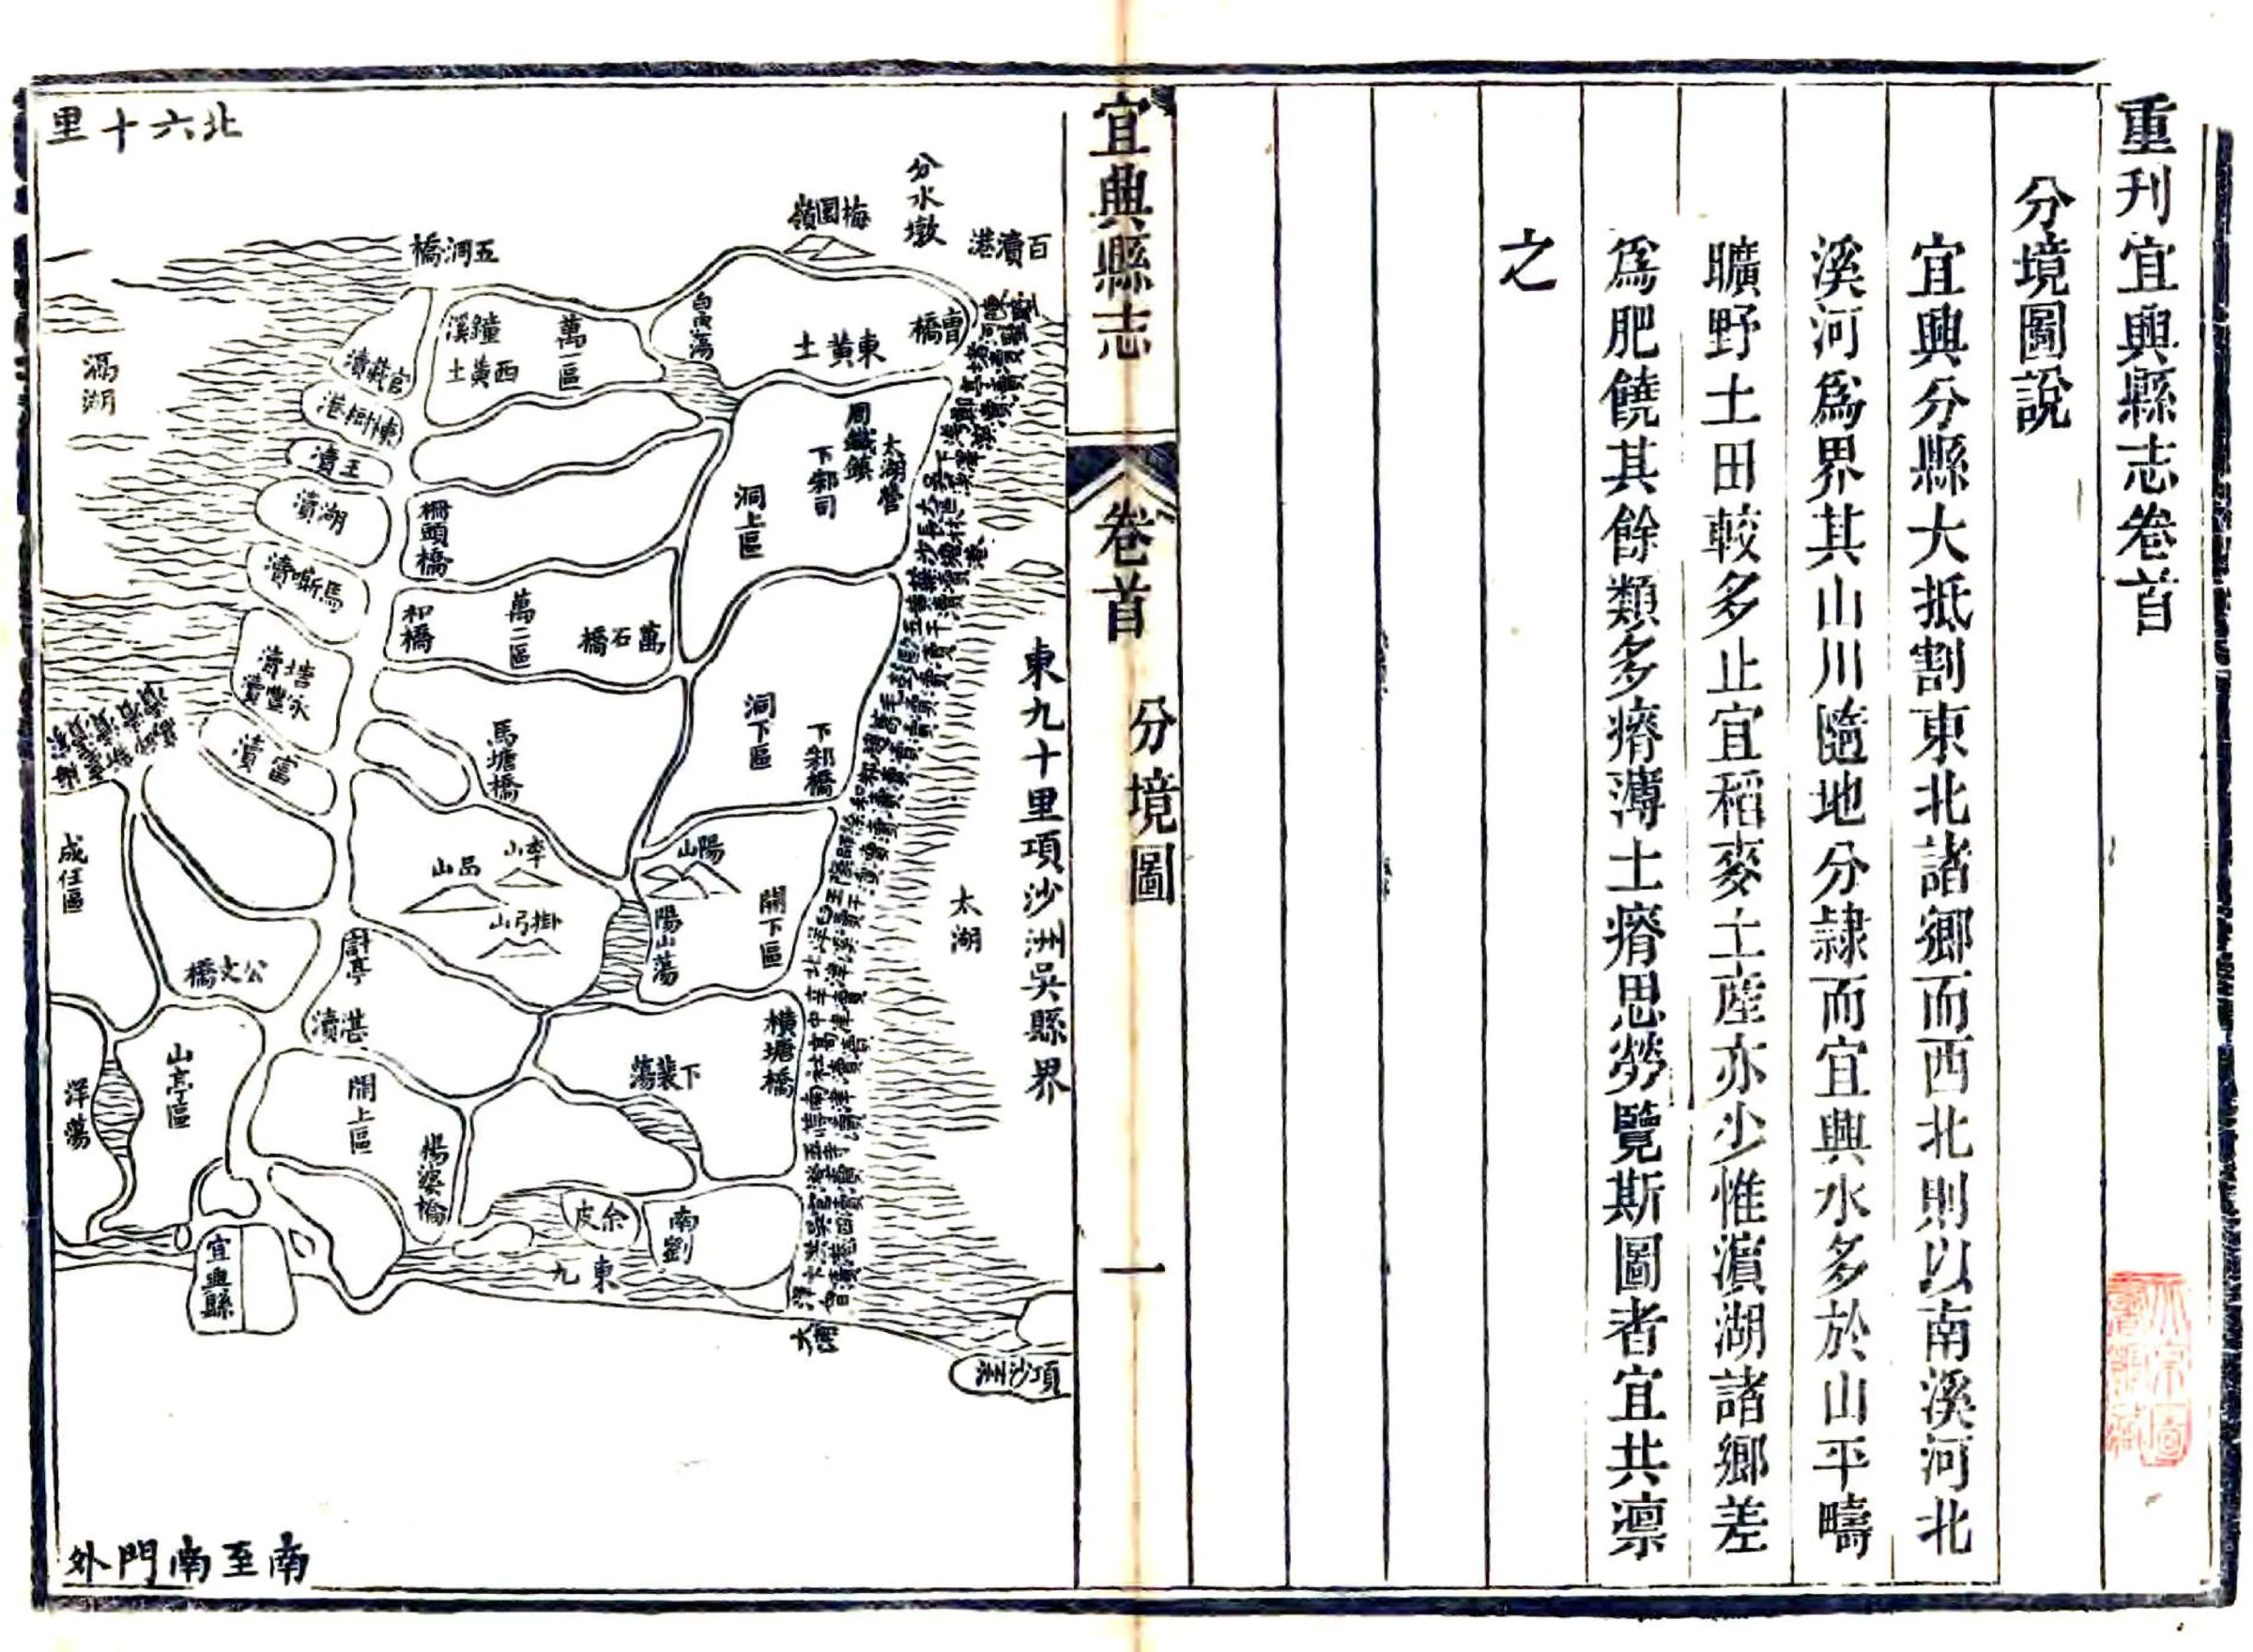 重刋宜興縣志卷首
分境圖說
宜興分縣大抵割東北諸鄉而西北則以南溪河北
溪河爲界其山川隨地分隷而宜興水多於山平疇
曠野土田較多止宜稻麥土産亦少惟濵湖諸鄉差
爲肥饒其餘類多瘠薄土瘠思勞覽斯圖者宜共凛
之
宜興縣志
卷首
分境圖
一
東九十里項沙洲吳縣界
太湖
百瀆港
分水墩
梅園嶺
五洞橋
北六十里
滆湖
曹橋
東黃土
白雨蕩
萬一區
鐘溪
西黃土
官莊瀆
楝樹港
王瀆
湖瀆
馬嘶瀆
塘瀆
永豐瀆
富瀆
太湖營
周鐵鎮
下邾司
洞上區
柵頭橋
和橋
萬二區
萬石橋
洞下區
下邾橋
馬塘橋
陽山
開下區
陽山蕩
李山
岊山
掛弓山
成任區
公文橋
計亭
湛瀆
橫塘橋
下裴蕩
開上區
楊婆橋
山亭區
洋蕩
南劉
余皮
東九
宜興縣
項沙洲
南至南門外